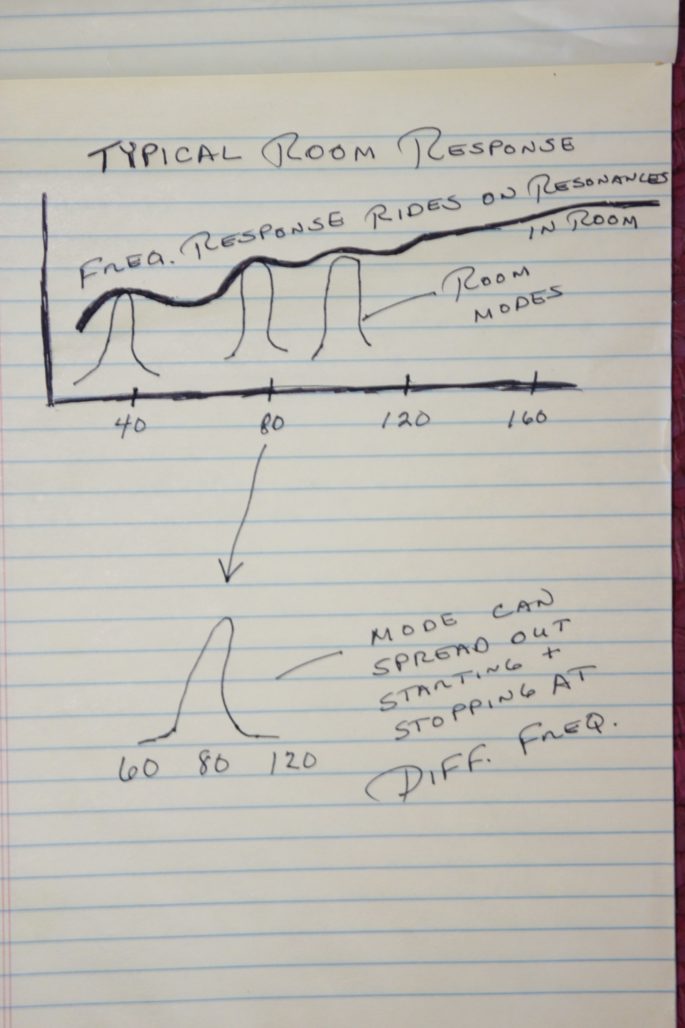 TYPICAL ROOM RESPONSE
FREQ. RESPONSE RIDES ON RESONANCES
IN ROOM
ROOM
MODES
40 80 120 160
MODE CAN
SPREAD OUT
STARTING +
STOPPING AT
DIFF. FREQ.
60 80 120